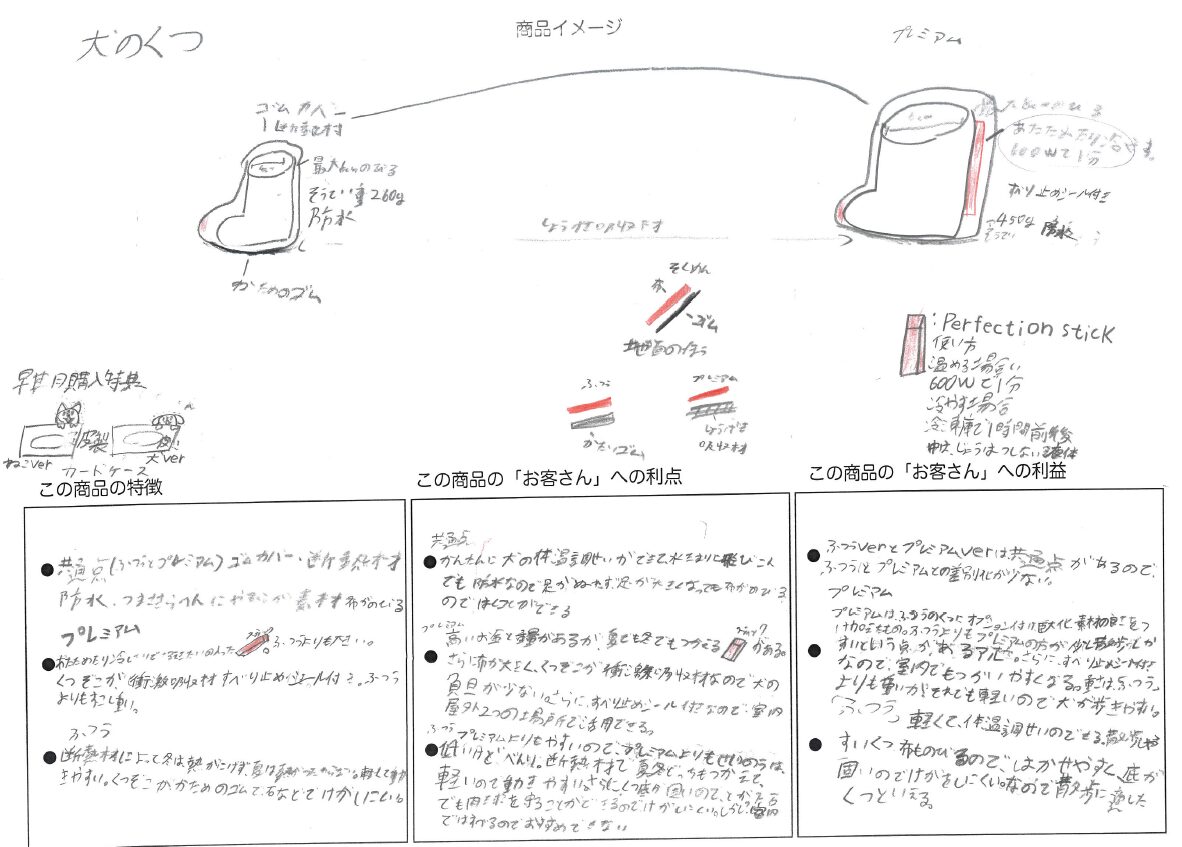 商品イメージ
犬のくつ
プレミアム
ゴムカバー
断熱材
最大 のびる
そうてい重260g
防水
かためのゴム
しょうげき吸収たオ
あたためたり冷
600Wで1分
すべり止めシール付き
450g 防水
そうてい
そくめん
布
ゴム
地面のほう
ふつう
かたいゴム
プレミアム
しょうげき
吸収材
:Perfection stick
使い方
温める場合い
600Wで1分
冷やす場合
冷凍庫で1時間前後
中は、じょうはつしない液体
早期購入特典
ねこver
皮製
犬ver
カードケース
この商品の特徴
共通点(ふつうとプレミアム)ゴムカバー・断熱材
防水、つま先らへんにやわらかい素材 布がのびる
プレミアム
ふつうよりも大きい。
くつぞこが、衝撃吸収材 すべり止めシール付き。ふつう
よりもすこし重い。
ふつう
断熱材によって冬は熱がにげず、夏は
きやすい。くつぞこがかためのゴムで、石などでけがしにくい。
この商品の「お客さん」への利点
共通点
かんたんに犬の体温調せいができて水たまりに飛びこん
でも防水なので足がぬれず、足が大きくなっても布がのびる
のではくことができる
プレミアム
高いお金と種があるが、夏でも冬でもつかえる がある。
さらに布が大きく、くつぞこが衝撃吸収材なので犬の
負担が少ない。さらに、すべり止めシール付きなので室内
屋外2つの場所で活用できる。
ふつう
プレミアムよりもやすいので、プレミアムよりもせいのうは、
低いけど、べんり。断熱材で夏冬どっちもつかえて、
軽いので動きやすい。さらにくつ底が固いので、とがった石
でも肉球を守ることができるのでけがしにくい。しかし、室内
ではすべるのでおすすめできない
この商品の「お客さん」への利益
ふつうverとプレミアムverは共通点があるので、
ふつうとプレミアムとの差別化が少ない。
プレミアム
プレミアムは、ふつうのくつにオプション付け巨大化 素材の良さをつ
けかえたもの。ふつうよりもプレミアムの方が
すいという点があるアルで。さらに、すべり止めシール付き
なので、室内でもつかいやすくなる。重さは、ふつう。
よりも重いがそれでも軽いので犬が歩きやすい。
ふつう
軽くて、体温調せいのできる。散歩しや
すいくつ 布ものびるのではかせやすく、底が
固いのでけがをしにくい。なので散歩に適した
くつといえる。